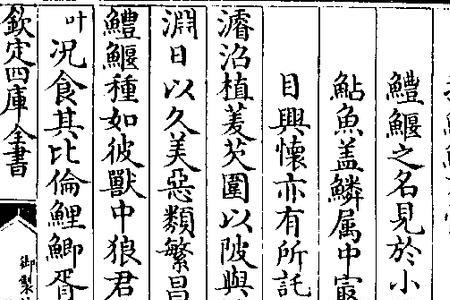 鱧鰋之名見於小
鮎魚盖鱗属中
目興懷亦有所託
濬沼植菱芡圍以陂與
淵日以久美惡類繁昌
鱧鰋種如彼獸中狼君
叶况食其比倫鯉鯽胥
欽定四庫全書
御製